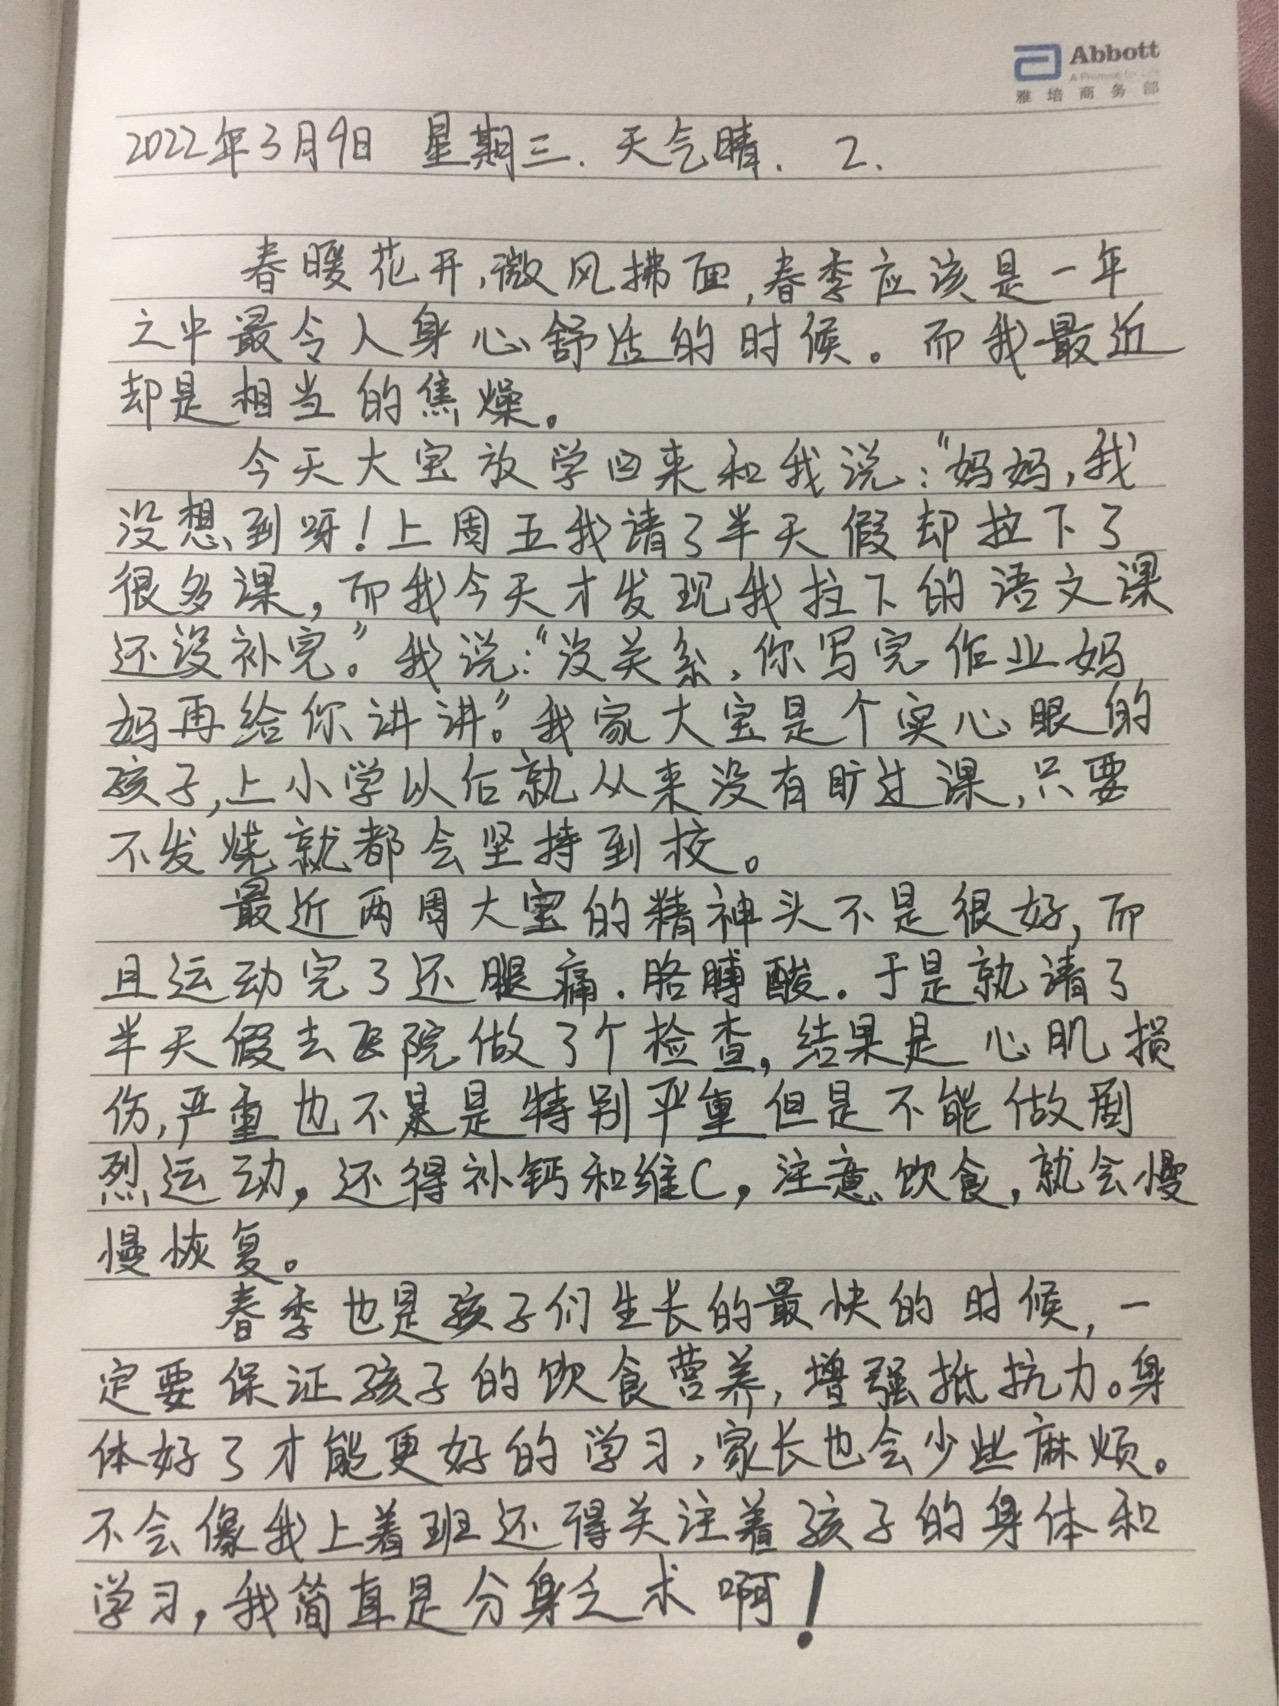 Abbott
A Promise for Life
雅培商务部
2022年3月9日 星期三. 天气晴. 2.
春暖花开,微风拂面,春季应该是一年
之中最令人身心舒适的时候。而我最近
却是相当的焦燥。
今天大宝放学回来和我说:“妈妈,我
没想到呀!上周五我请了半天假却拉下了
很多课,而我今天才发现我拉下的语文课
还没补完。”我说:“没关系,你写完作业妈
妈再给你讲讲。”我家大宝是个实心眼的
孩子,上小学以后就从来没有旷过课,只要
不发烧就都会坚持到校。
最近两周大宝的精神头不是很好,而
且运动完了还腿痛.胳膊酸.于是就请了
半天假去医院做了个检查,结果是心肌损
伤,严重也不是是特别严重但是不能做剧
烈运动,还得补钙和维C,注意饮食,就会慢
慢恢复。
春季也是孩子们生长的最快的时候,一
定要保证孩子的饮食营养,增强抵抗力。身
体好了才能更好的学习,家长也会少些麻烦。
不会像我上着班还得关注着孩子的身体和
学习,我简直是分身乏术啊!